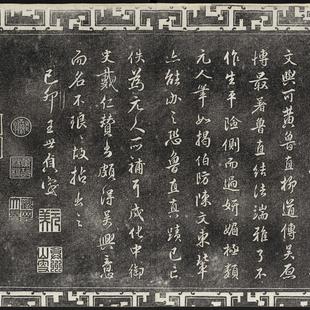 文與可黃魯直柳道傳吳原
博最著魯直結法端雅了不
作生平險側而過妍媚極類
元人筆如揭伯防陳文東輩
亦能辦之恐魯直真蹟已亡
佚為元人所補耳成化中御
史戴仁贊書頗得吳興意
而名不故拈出之
己卯王世貞識